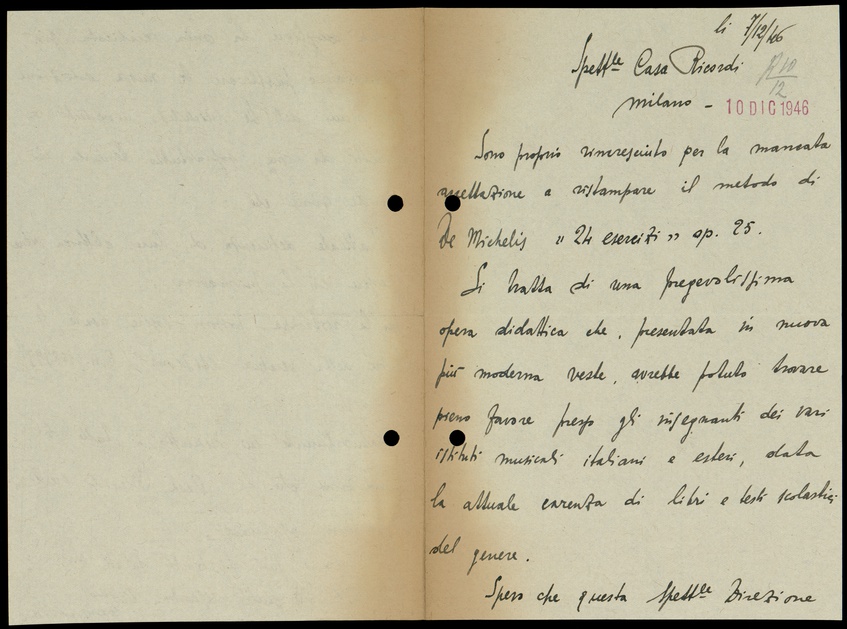 li 7/12/46
Spett.le Casa Ricordi
R 10/12
Milano - 10 DIC 1946
Sono proprio rincresciuto per la mancata
accettazione a ristampare il metodo di
De Michelis "24 esercizi" op. 25.
Si tratta di una pregevolissima
opera didattica che, presentata in nuova
più moderna veste, avrebbe potuto trovare
pieno favore presso gli insegnanti dei vari
istituti musicali italiani e esteri, data
la attuale carenza di libri e testi scolastici
del genere.
Spero che questa Spett.le Direzione